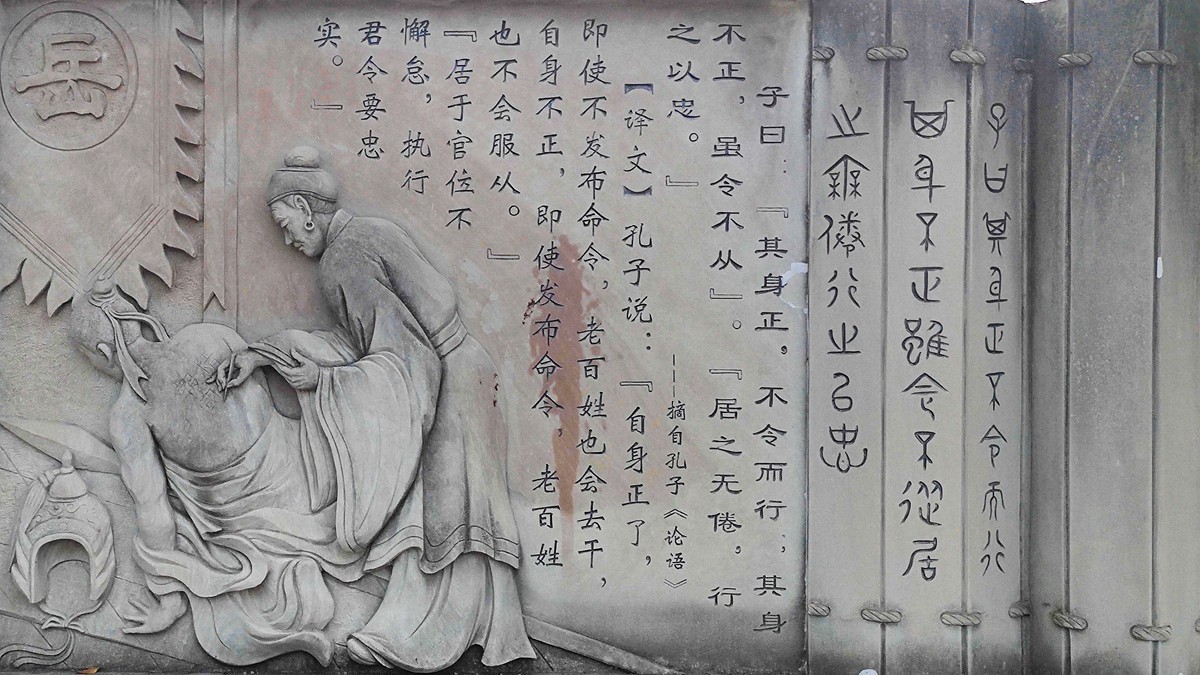 子曰其身正不令而行
其身不正雖令不從居
之無倦行之以忠
子曰：『其身正，不令而行；其身
不正，虽令不从』。『居之无倦，行
之以忠。』
——摘自孔子《论语》
【译文】孔子说：『自身正了，
即使不发布命令，老百姓也会去干，
自身不正，即使发布命令，老百姓
也不会服从。』
『居于官位不
懈怠，执行
君令要忠
实。』
岳